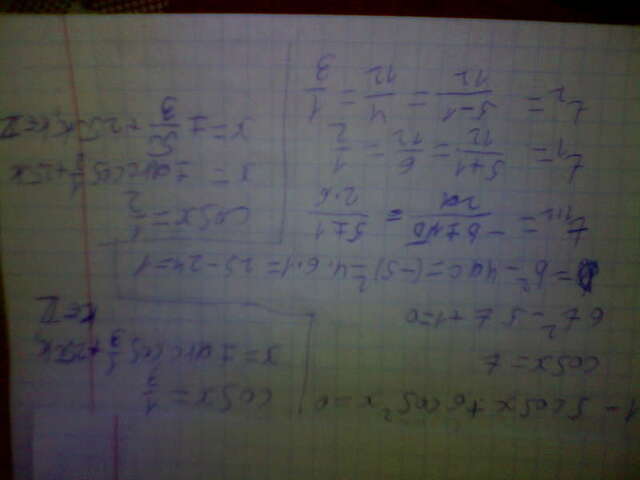 1 - 5cosx + 6cos²x = 0
cosx = t
6t² - 5t + 1 = 0
D = b² - 4ac = (-5)² - 4·6·1 = 25 - 24 = 1
t₁,₂ = (-b ± √D)/2a = (5 ± 1)/(2·6)
t₁ = (5+1)/12 = 6/12 = 1/2
t₂ = (5-1)/12 = 4/12 = 1/3
cosx = 1/3
x = ± arccos 1/3 + 2πk
k∈Z
cosx = 1/2
x = ± arccos 1/2 + 2πk
x = ± π/3 + 2πk, k∈Z